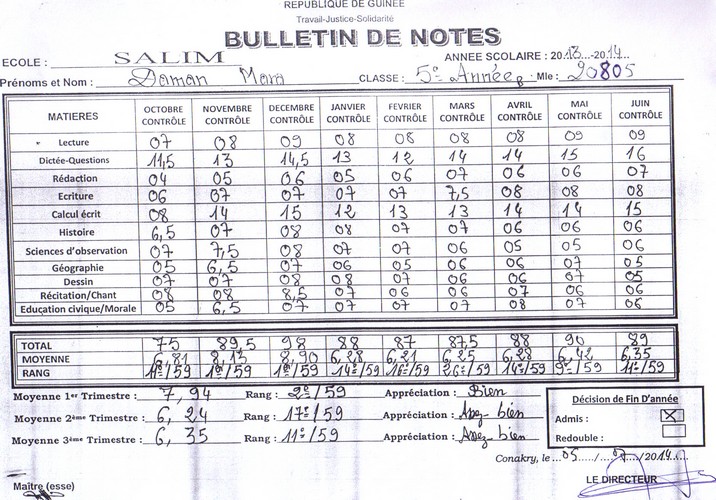 REPUBLIQUE DE GUINEE
Travail-Justice-Solidarité
BULLETIN DE NOTES
ECOLE : SALIM ANNEE SCOLAIRE : 2013-2014
Prénoms et Nom : Daman Mara CLASSE : 5e Année B Mle : 20805
MATIERES OCTOBRE CONTRÔLE NOVEMBRE CONTRÔLE DECEMBRE CONTRÔLE JANVIER CONTRÔLE FEVRIER CONTRÔLE MARS CONTRÔLE AVRIL CONTRÔLE MAI CONTRÔLE JUIN CONTRÔLE
Lecture 07 08 09 08 08 08 08 09 09
Dictée-Questions 11,5 13 14,5 13 12 14 14 15 16
Rédaction 04 05 06 05 06 07 06 06 07
Ecriture 06 07 07 07 07 7,5 08 08 08
Calcul écrit 08 14 15 12 13 13 14 14 15
Histoire 6,5 07 08 08 07 07 06 06 06
Sciences d'observation 07 7,5 08 07 07 06 05 05 06
Géographie 05 6,5 07 06 05 06 06 07 05
Dessin 07 07 08 08 07 06 06 07 05
Récitation/Chant 08 08 8,5 07 06 06 07 06 06
Education civique/Morale 05 6,5 07 07 07 07 08 07 06
TOTAL 75 89,5 98 88 87 87,5 88 90 89
MOYENNE 6,81 8,13 8,90 6,28 6,21 6,25 6,28 6,42 6,35
RANG /59 /59 /59 14e/59 16e/59 26e/59 14e/59 9e/59 11e/59
Moyenne 1er Trimestre : 7,94 Rang : 2e/59 Appréciation : Bien
Moyenne 2ème Trimestre : 6,24 Rang : 17e/59 Appréciation : Assez-bien
Moyenne 3ème Trimestre : 6,35 Rang : 11e/59 Appréciation : Assez-bien
Décision de Fin D'année
Admis : X
Redouble :
Conakry, le 05 / /2014
Maître (esse) LE DIRECTEUR